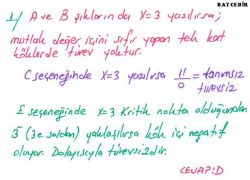 BAYCEBİR
1/ A ve B şıklarında x=3 yazılırsa;
mutlak değer içini sıfır yapan tek kat
köklerde türev yoktur.
C seçeneğinde x=3 yazılırsa 11/0 = tanımsız
türevsiz
E seçeneğinde x=3 kritik nokta olduğundan
3⁻ (3e soldan) yaklaşılırsa kök içi negatif
oluyor Dolayısıyla türevsizdir.
CEVAP:D